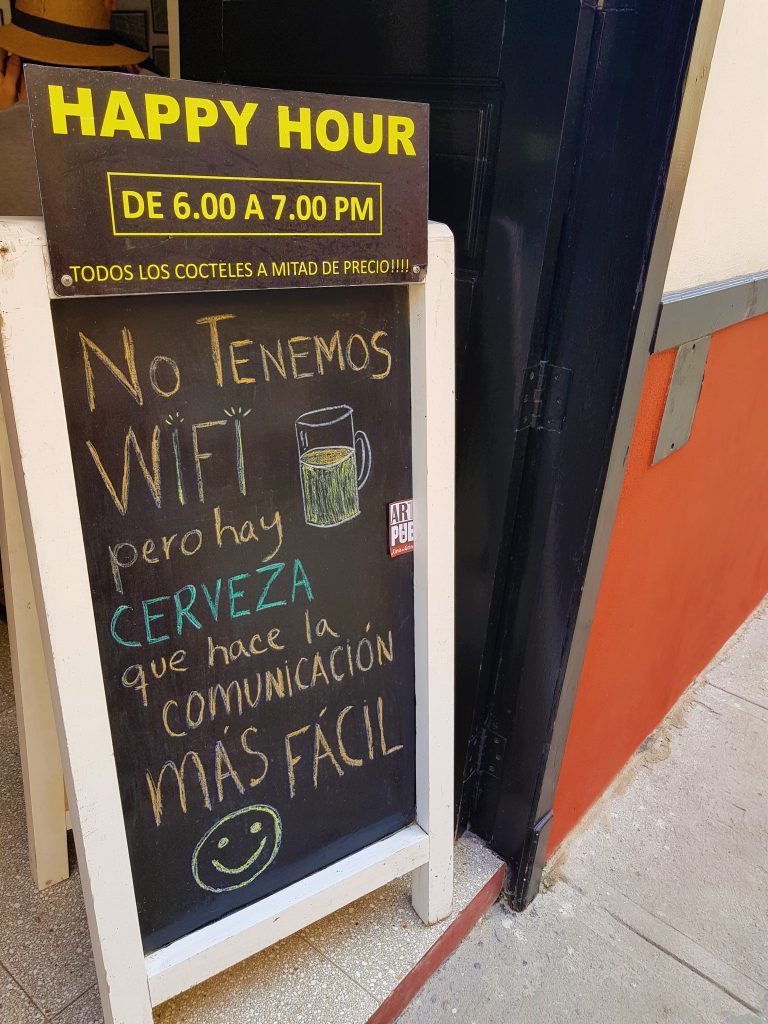 HAPPY HOUR
DE 6.00 A 7.00 PM
TODOS LOS COCTELES A MITAD DE PRECIO!!!!
No TENEMOS
WiFi
pero hay
CERVEZA
que hace la
COMUNICACIÓN
MÁS FÁCIL